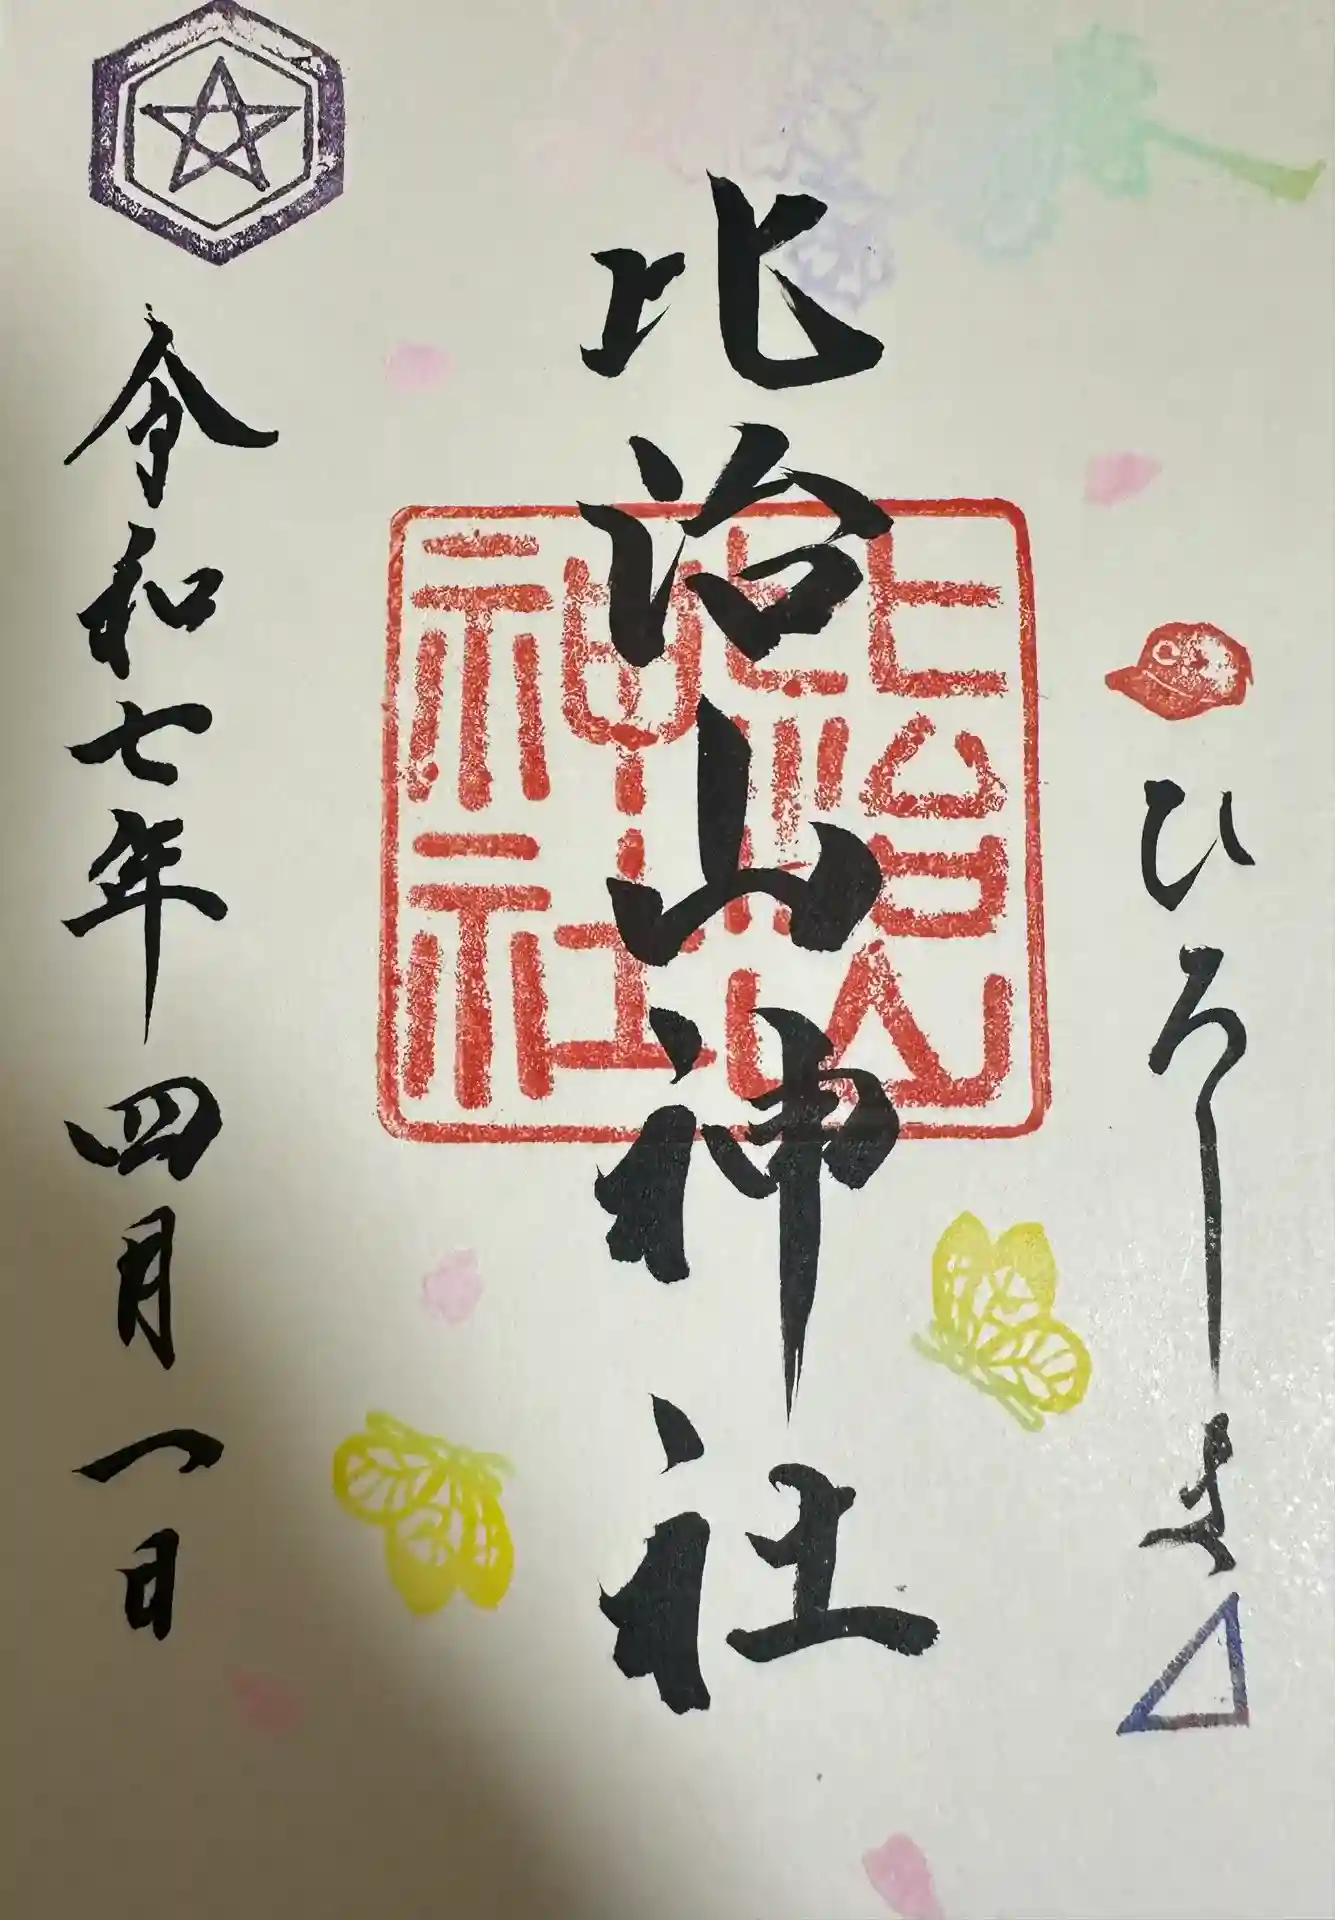 ひろしま
比治山神社
比治山神社
令和七年四月一日